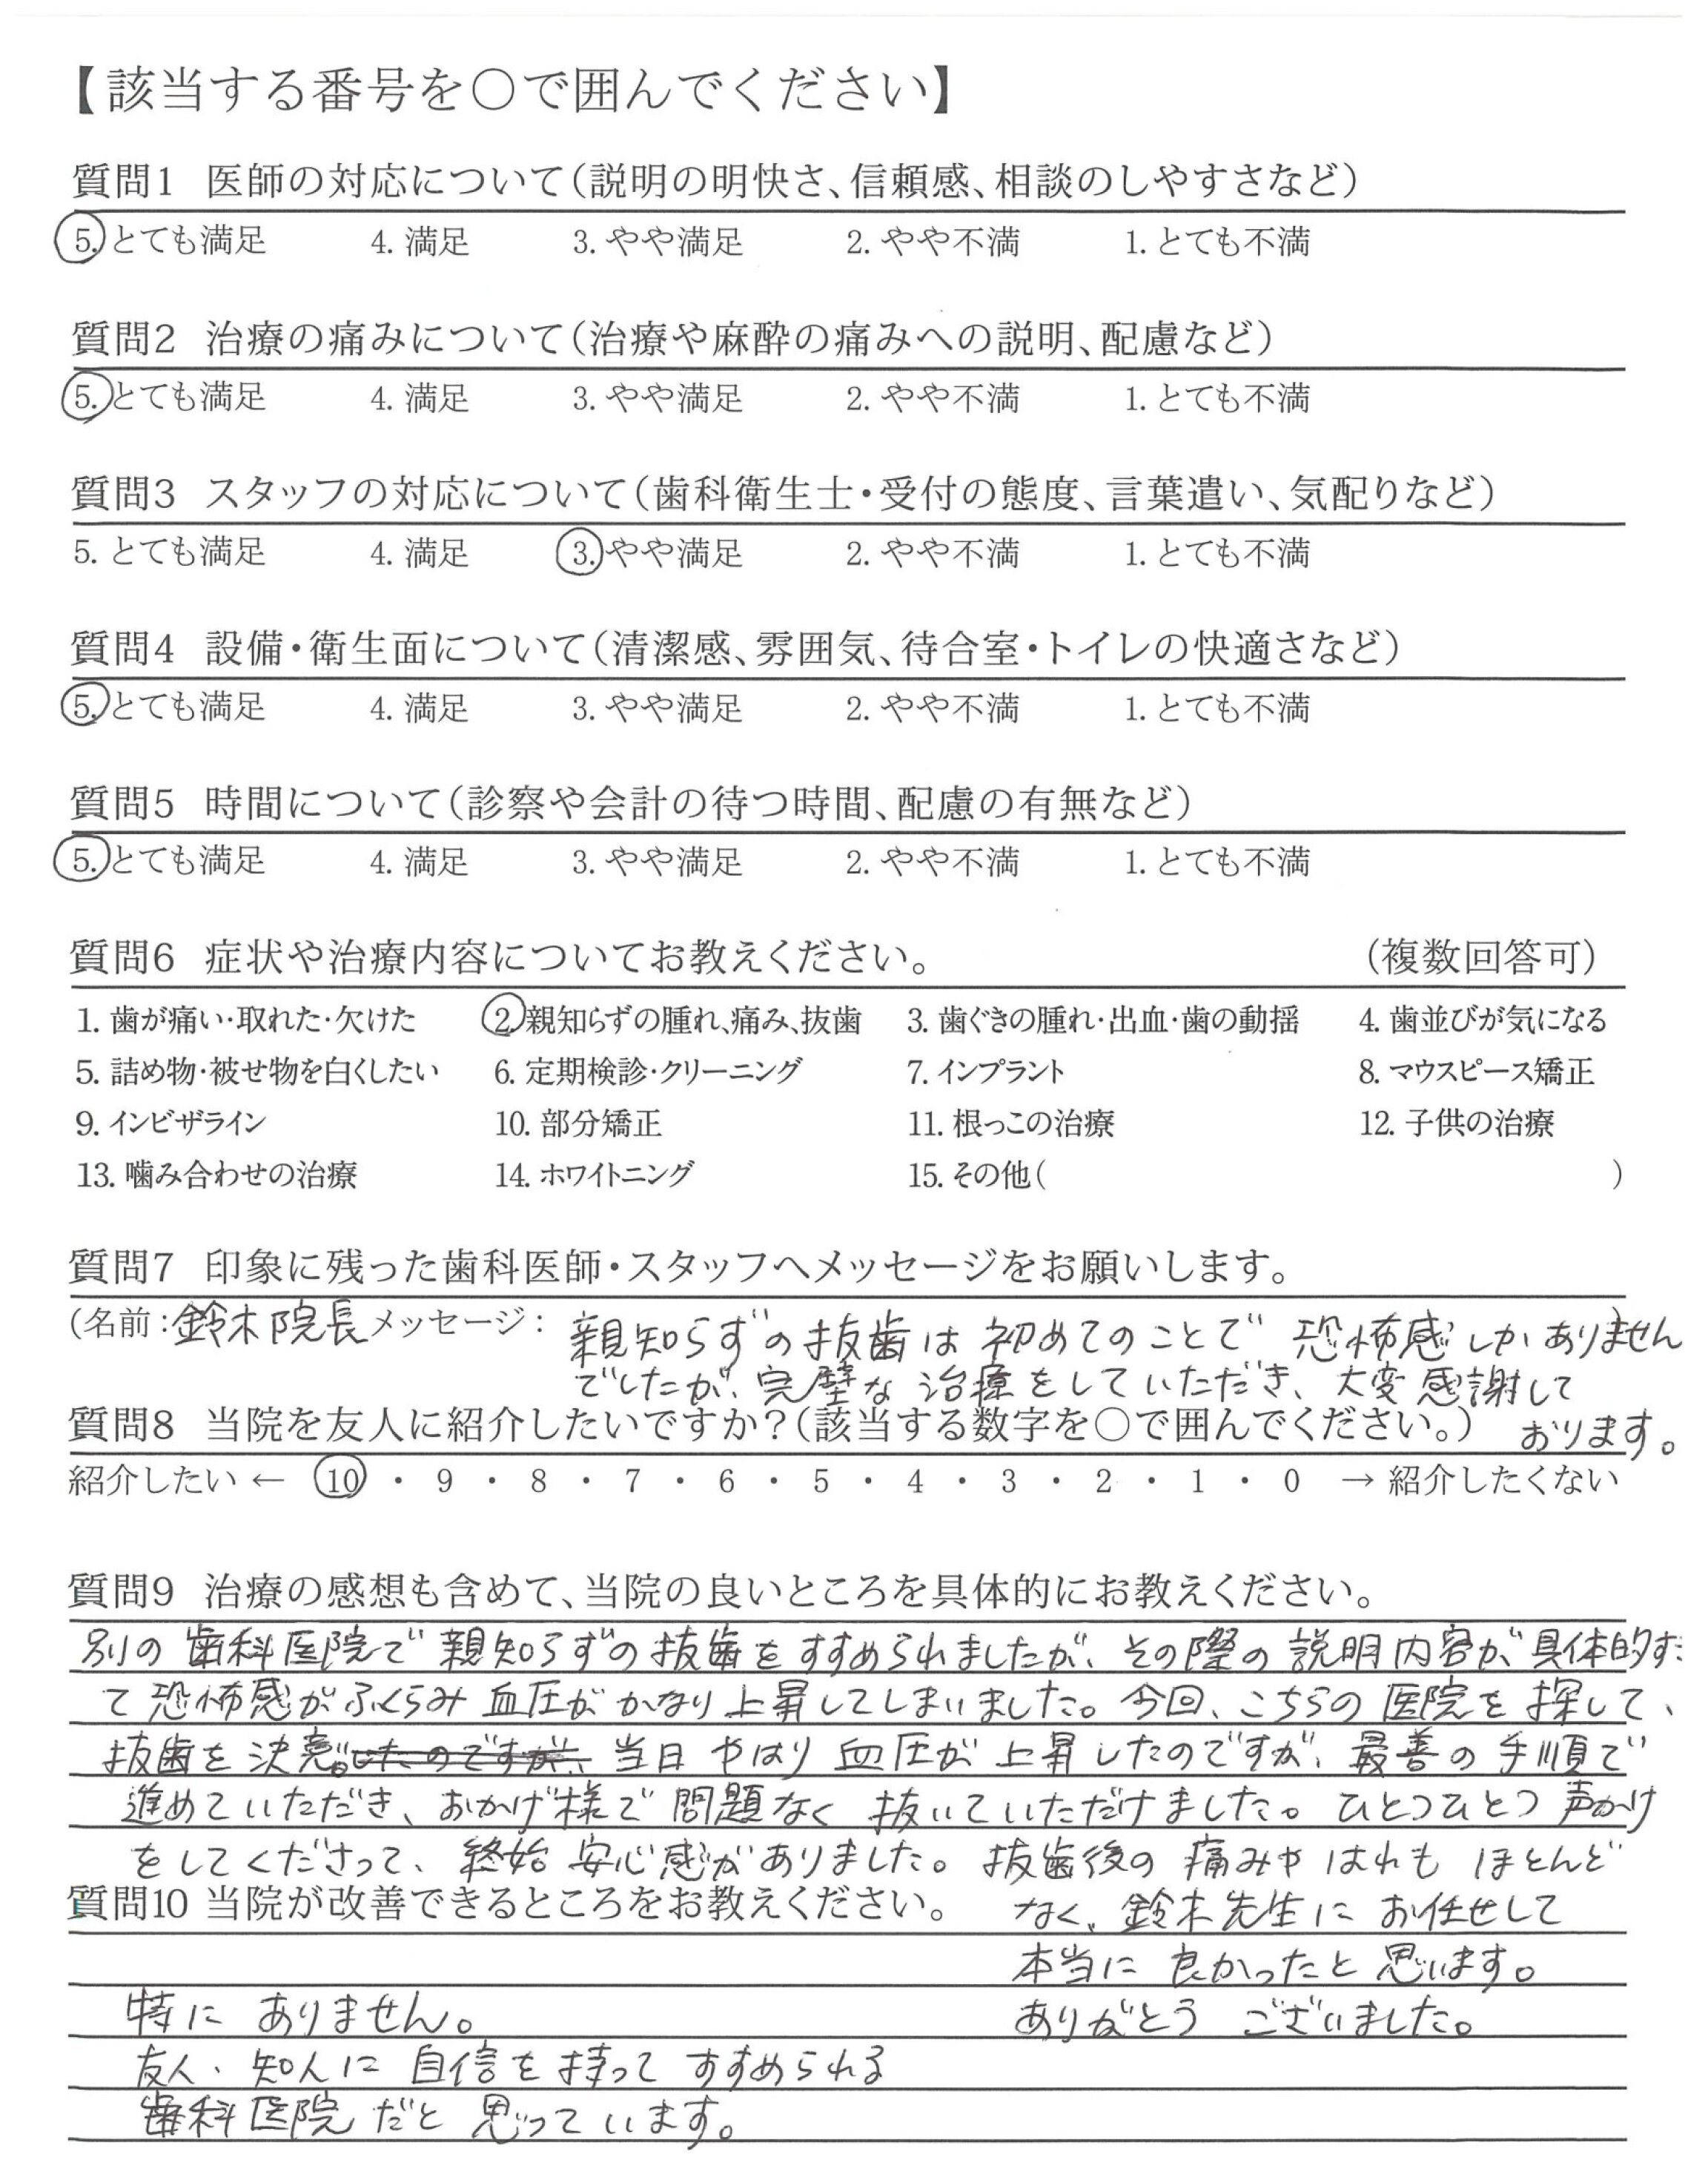 【該当する番号を〇で囲んでください】
質問1 医師の対応について(説明の明快さ、信頼感、相談のしやすさなど)
5. とても満足 4. 満足 3. やや満足 2. やや不満 1. とても不満
質問2 治療の痛みについて(治療や麻酔の痛みへの説明、配慮など)
5. とても満足 4. 満足 3. やや満足 2. やや不満 1. とても不満
質問3 スタッフの対応について(歯科衛生士・受付の態度、言葉遣い、気配りなど)
5. とても満足 4. 満足 3. やや満足 2. やや不満 1. とても不満
質問4 設備・衛生面について(清潔感、雰囲気、待合室・トイレの快適さなど)
5. とても満足 4. 満足 3. やや満足 2. やや不満 1. とても不満
質問5 時間について(診察や会計の待つ時間、配慮の有無など)
5. とても満足 4. 満足 3. やや満足 2. やや不満 1. とても不満
質問6 症状や治療内容についてお教えください。 (複数回答可)
1. 歯が痛い・取れた・欠けた 2. 親知らずの腫れ、痛み、抜歯 3. 歯ぐきの腫れ・出血・歯の動揺 4. 歯並びが気になる
5. 詰め物・被せ物を白くしたい 6. 定期検診・クリーニング 7. インプラント 8. マウスピース矯正
9. インビザライン 10. 部分矯正 11. 根っこの治療 12. 子供の治療
13. 噛み合わせの治療 14. ホワイトニング 15. その他( )
質問7 印象に残った歯科医師・スタッフへメッセージをお願いします。
(名前:鈴木院長 メッセージ: 親知らずの抜歯は初めてのことで恐怖感しかありません)
でしたが、完璧な治療をしていただき、大変感謝して
おります。
質問8 当院を友人に紹介したいですか?(該当する数字を〇で囲んでください。)
紹介したい ← 10 ・ 9 ・ 8 ・ 7 ・ 6 ・ 5 ・ 4 ・ 3 ・ 2 ・ 1 ・ 0 → 紹介したくない
質問9 治療の感想も含めて、当院の良いところを具体的にお教えください。
別の歯科医院で親知らずの抜歯をすすめられましたが、その際の説明内容が具体的す
て恐怖感がふくらみ血圧がかなり上昇してしまいました。今回、こちらの医院を探して、
抜歯を決意。したのですが、当日やはり血圧が上昇したのですが、最善の手順で
進めていただき、おかげ様で問題なく抜いていただけました。ひとつひとつ声かけ
をしてくださって、終始安心感がありました。抜歯後の痛みやはれもほとんど
なく、鈴木先生にお任せして
本当に良かったと思います。
ありがとうございました。
質問10 当院が改善できるところをお教えください。
特にありません。
友人、知人に自信を持ってすすめられる
歯科医院だと思っています。